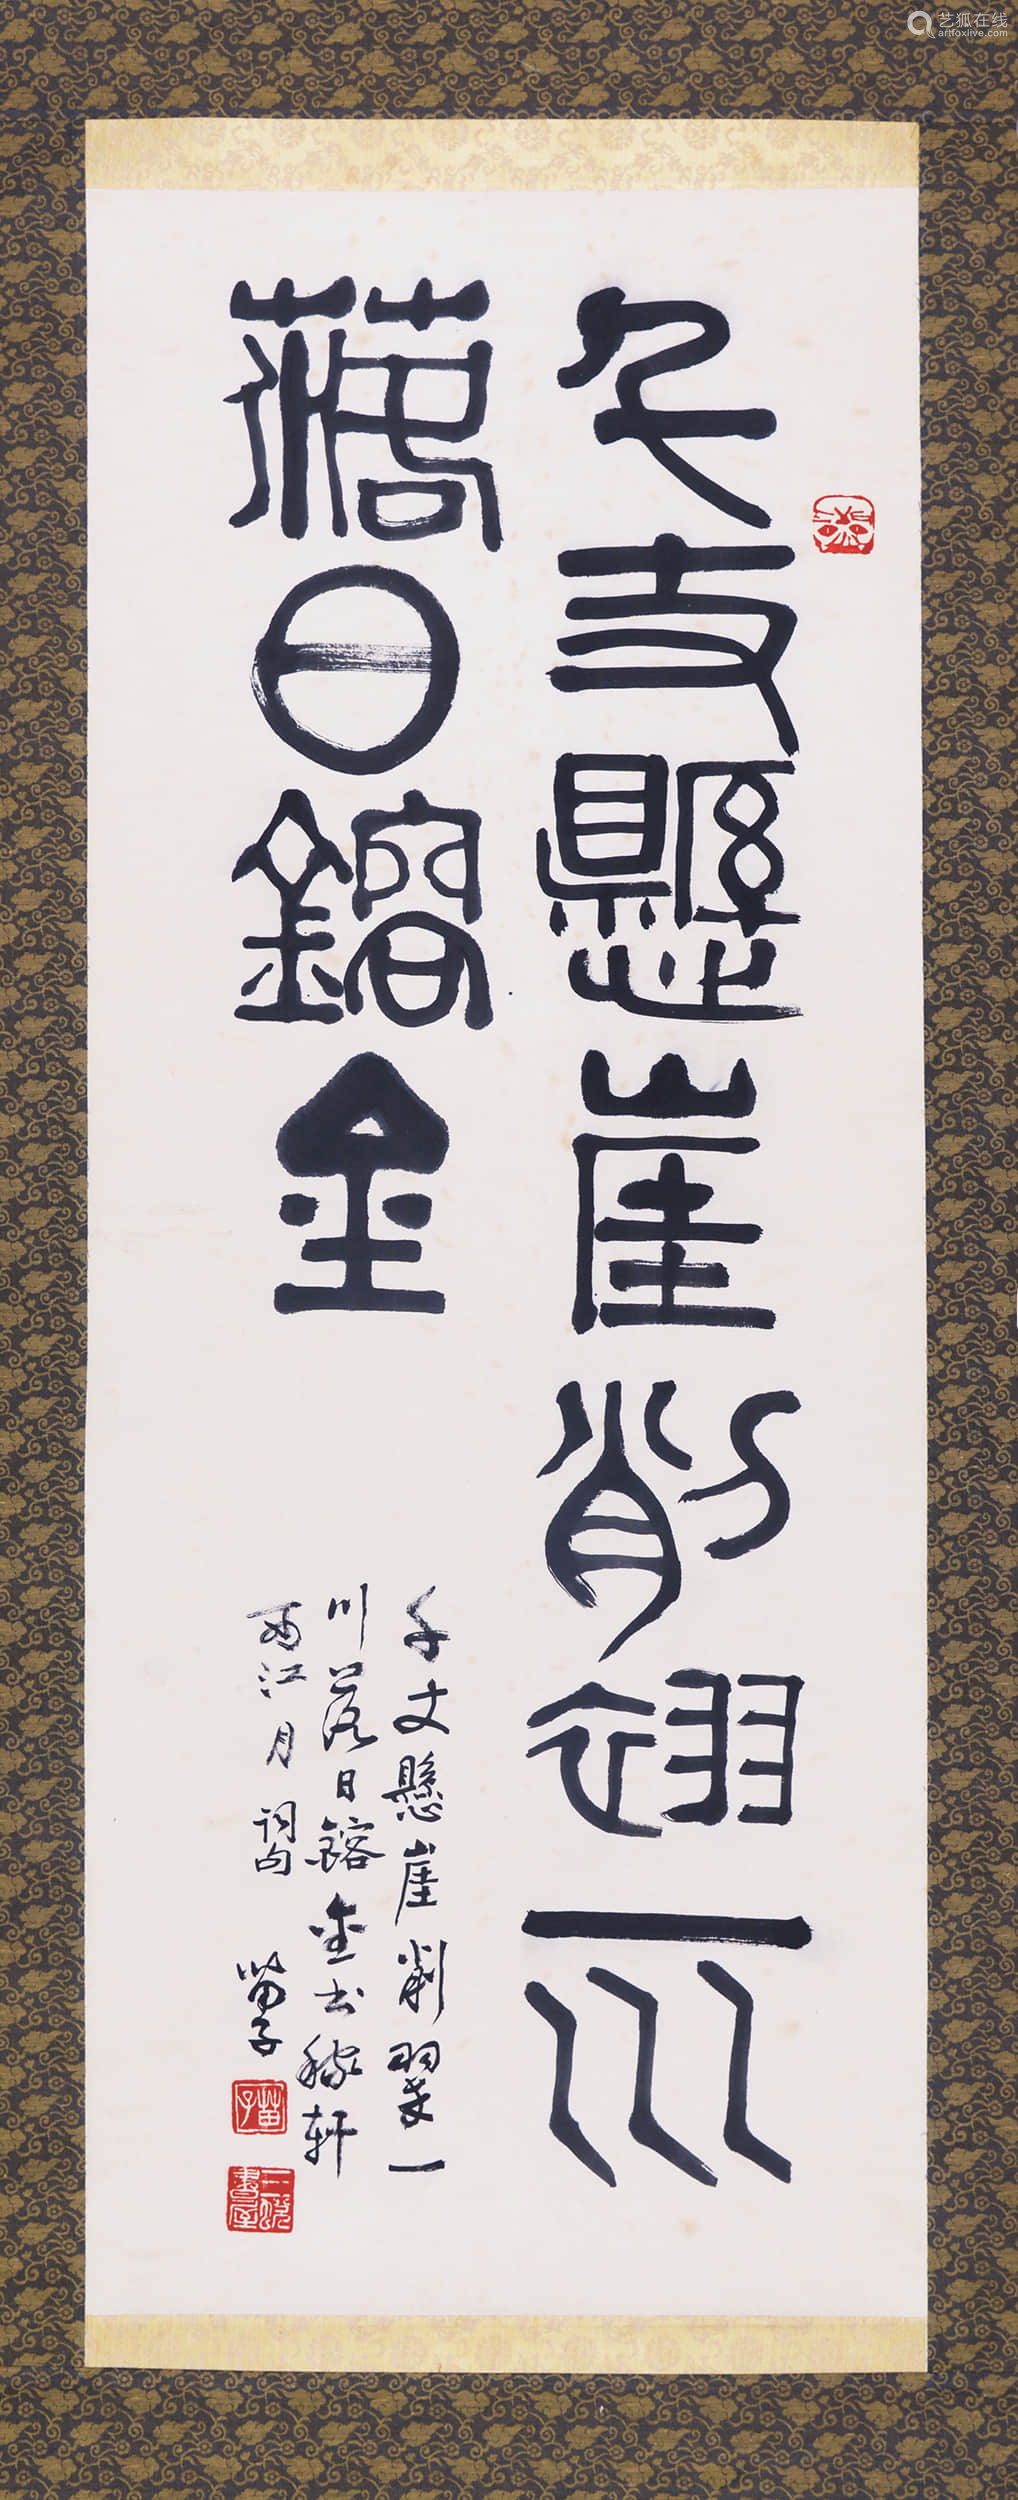 千丈懸崖削翠一川
落日鎔金
千丈懸崖削翠一
川落日鎔金書稼軒
西江月詞句
苗子
苗子
艺狐在线
artfoxlive.com